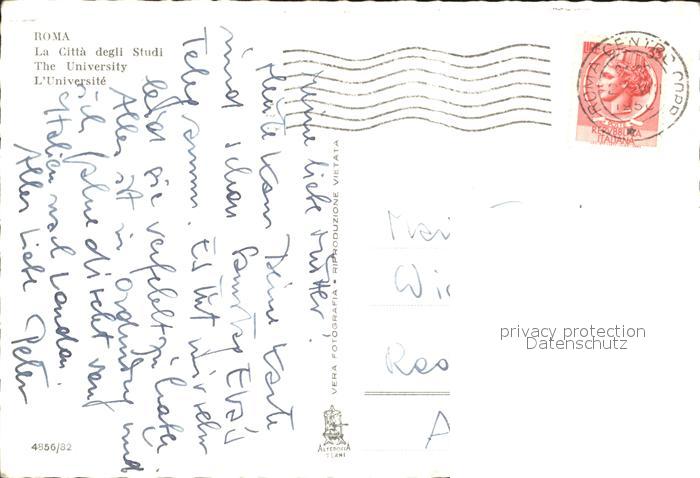 ROMA
La Città degli Studi
The University
L'Université
Meine liebe Mutter!
Heute kam Deine Karte
und schon Samstag Eva's
Telegramm. Es tut mir sehr
leid sie verfehlt zu haben.
Alles ist in Ordnung und
ich fahre direkt von
Italien nach London.
Alles Liebe Peter
4856/82
VERA FOTOGRAFIA - RIPRODUZIONE VIETATA
ALTEROCCA
TERNI
ROMA CENTRO CORR
POSTE
REPVBBLICA
ITALIANA
privacy protection
Datenschutz